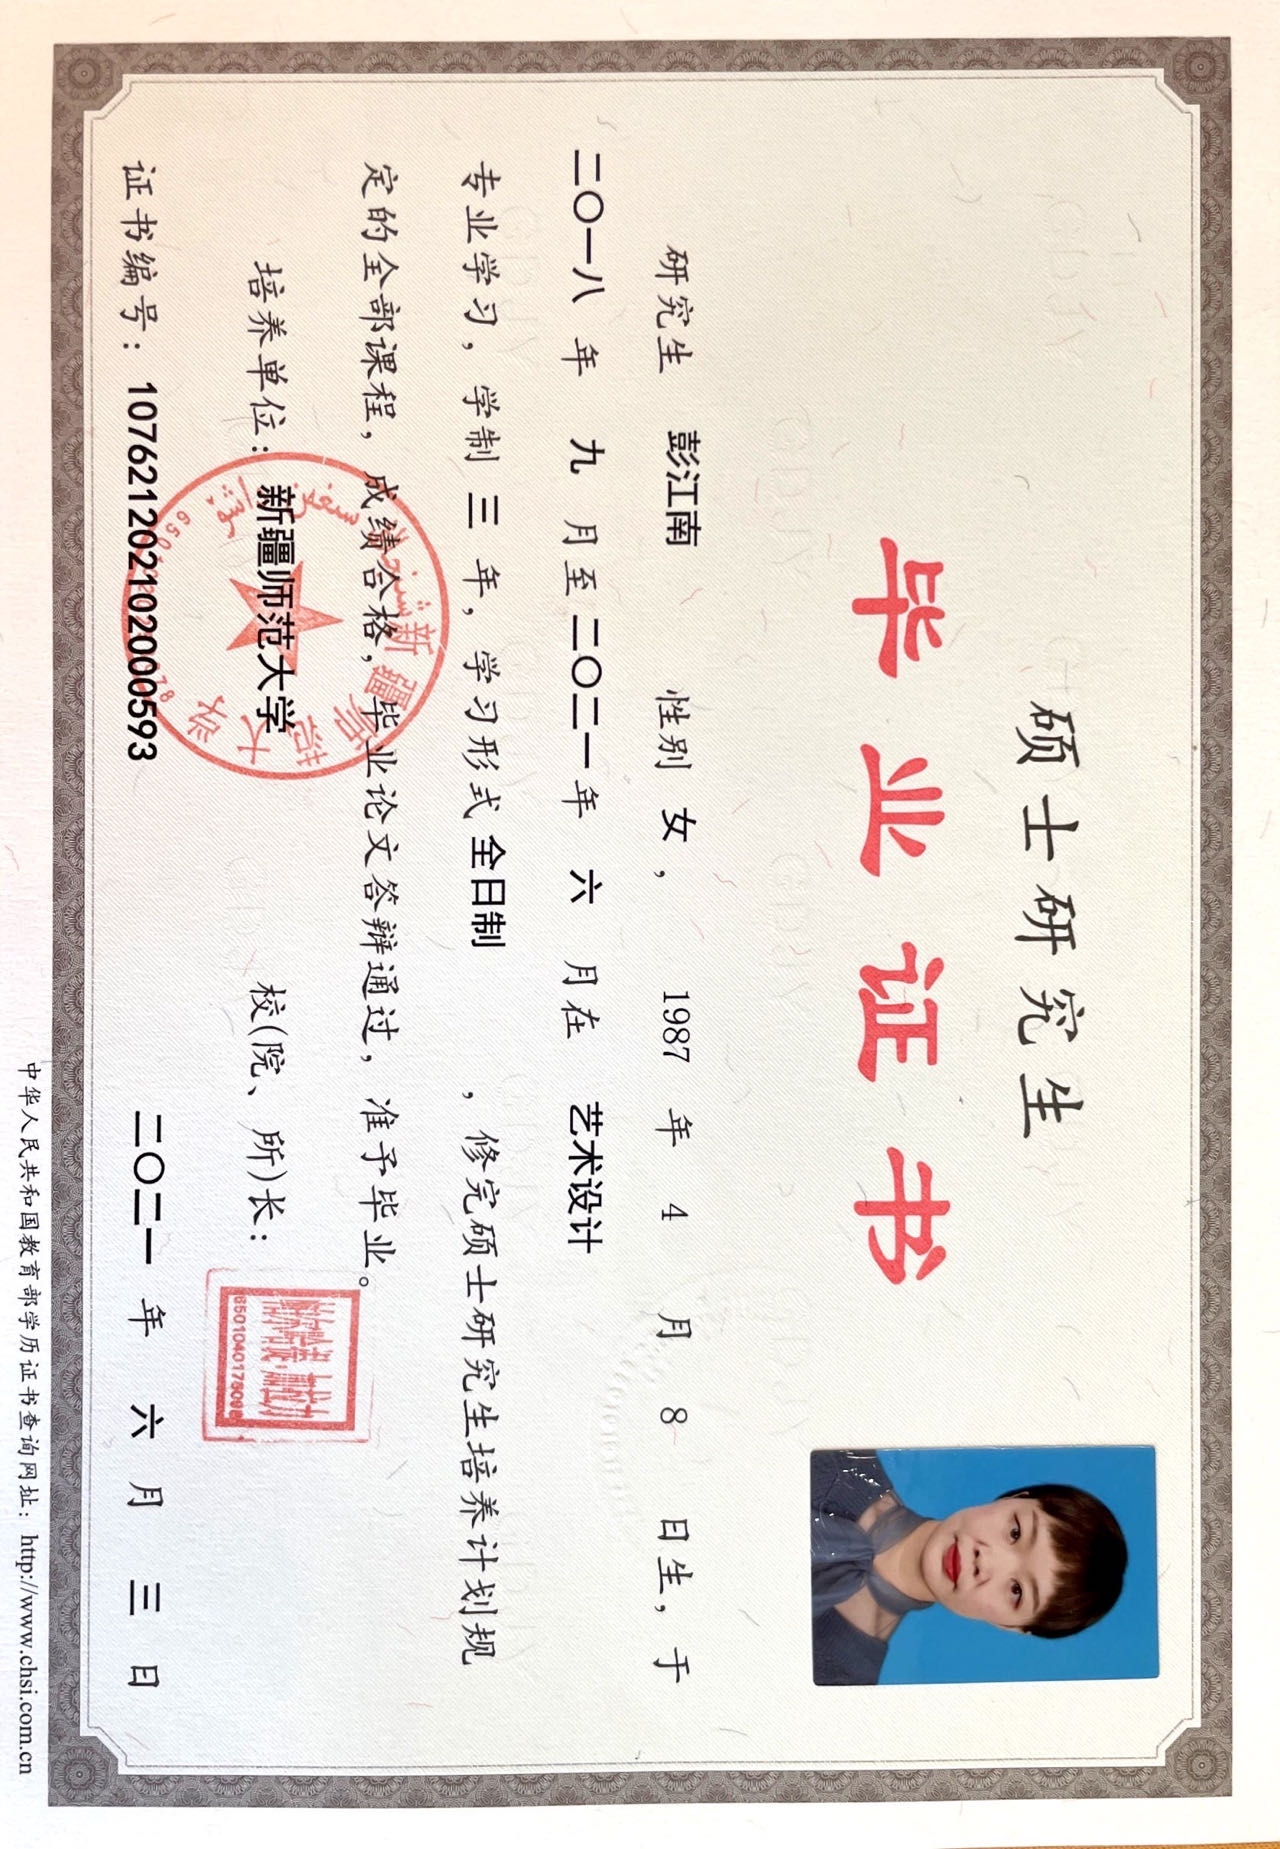 硕士研究生
毕业证书
研究生 彭江南 性别 女， 1987 年 4 月 8 日生，于
二〇一八 年 九 月至二〇二一年 六 月在 艺术设计
专业学习，学制 三 年，学习形式 全日制 ，修完硕士研究生培养计划规
定的全部课程，成绩合格，毕业论文答辩通过，准予毕业。
培养单位：新疆师范大学 校(院、所)长：
新疆师范大学
证书编号：107621202102000593 二〇二一 年 六 月 三 日
中华人民共和国教育部学历证书查询网址：http://www.chsi.com.cn